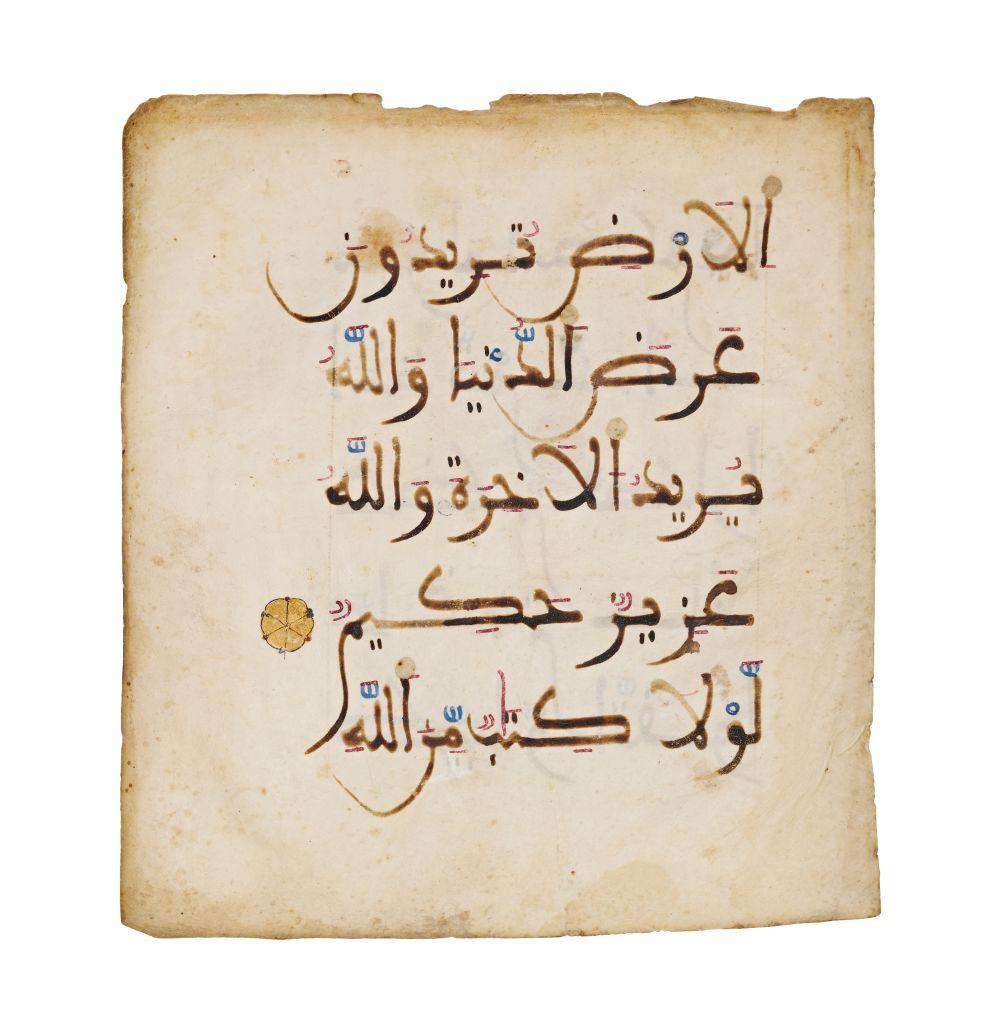 اَ۬لَارْضِ تُرِيدُونَ
عَرَضَ اَ۬لدُّنْيَا وَاللَّهُ
يُرِيدُ اُ۬لَاخِرَةَ وَاللَّهُ
عَزِيزٌ حَكِيمٌ
لَّوْلَا كِتَٰبٌ مِّنَ اَ۬للَّهِ